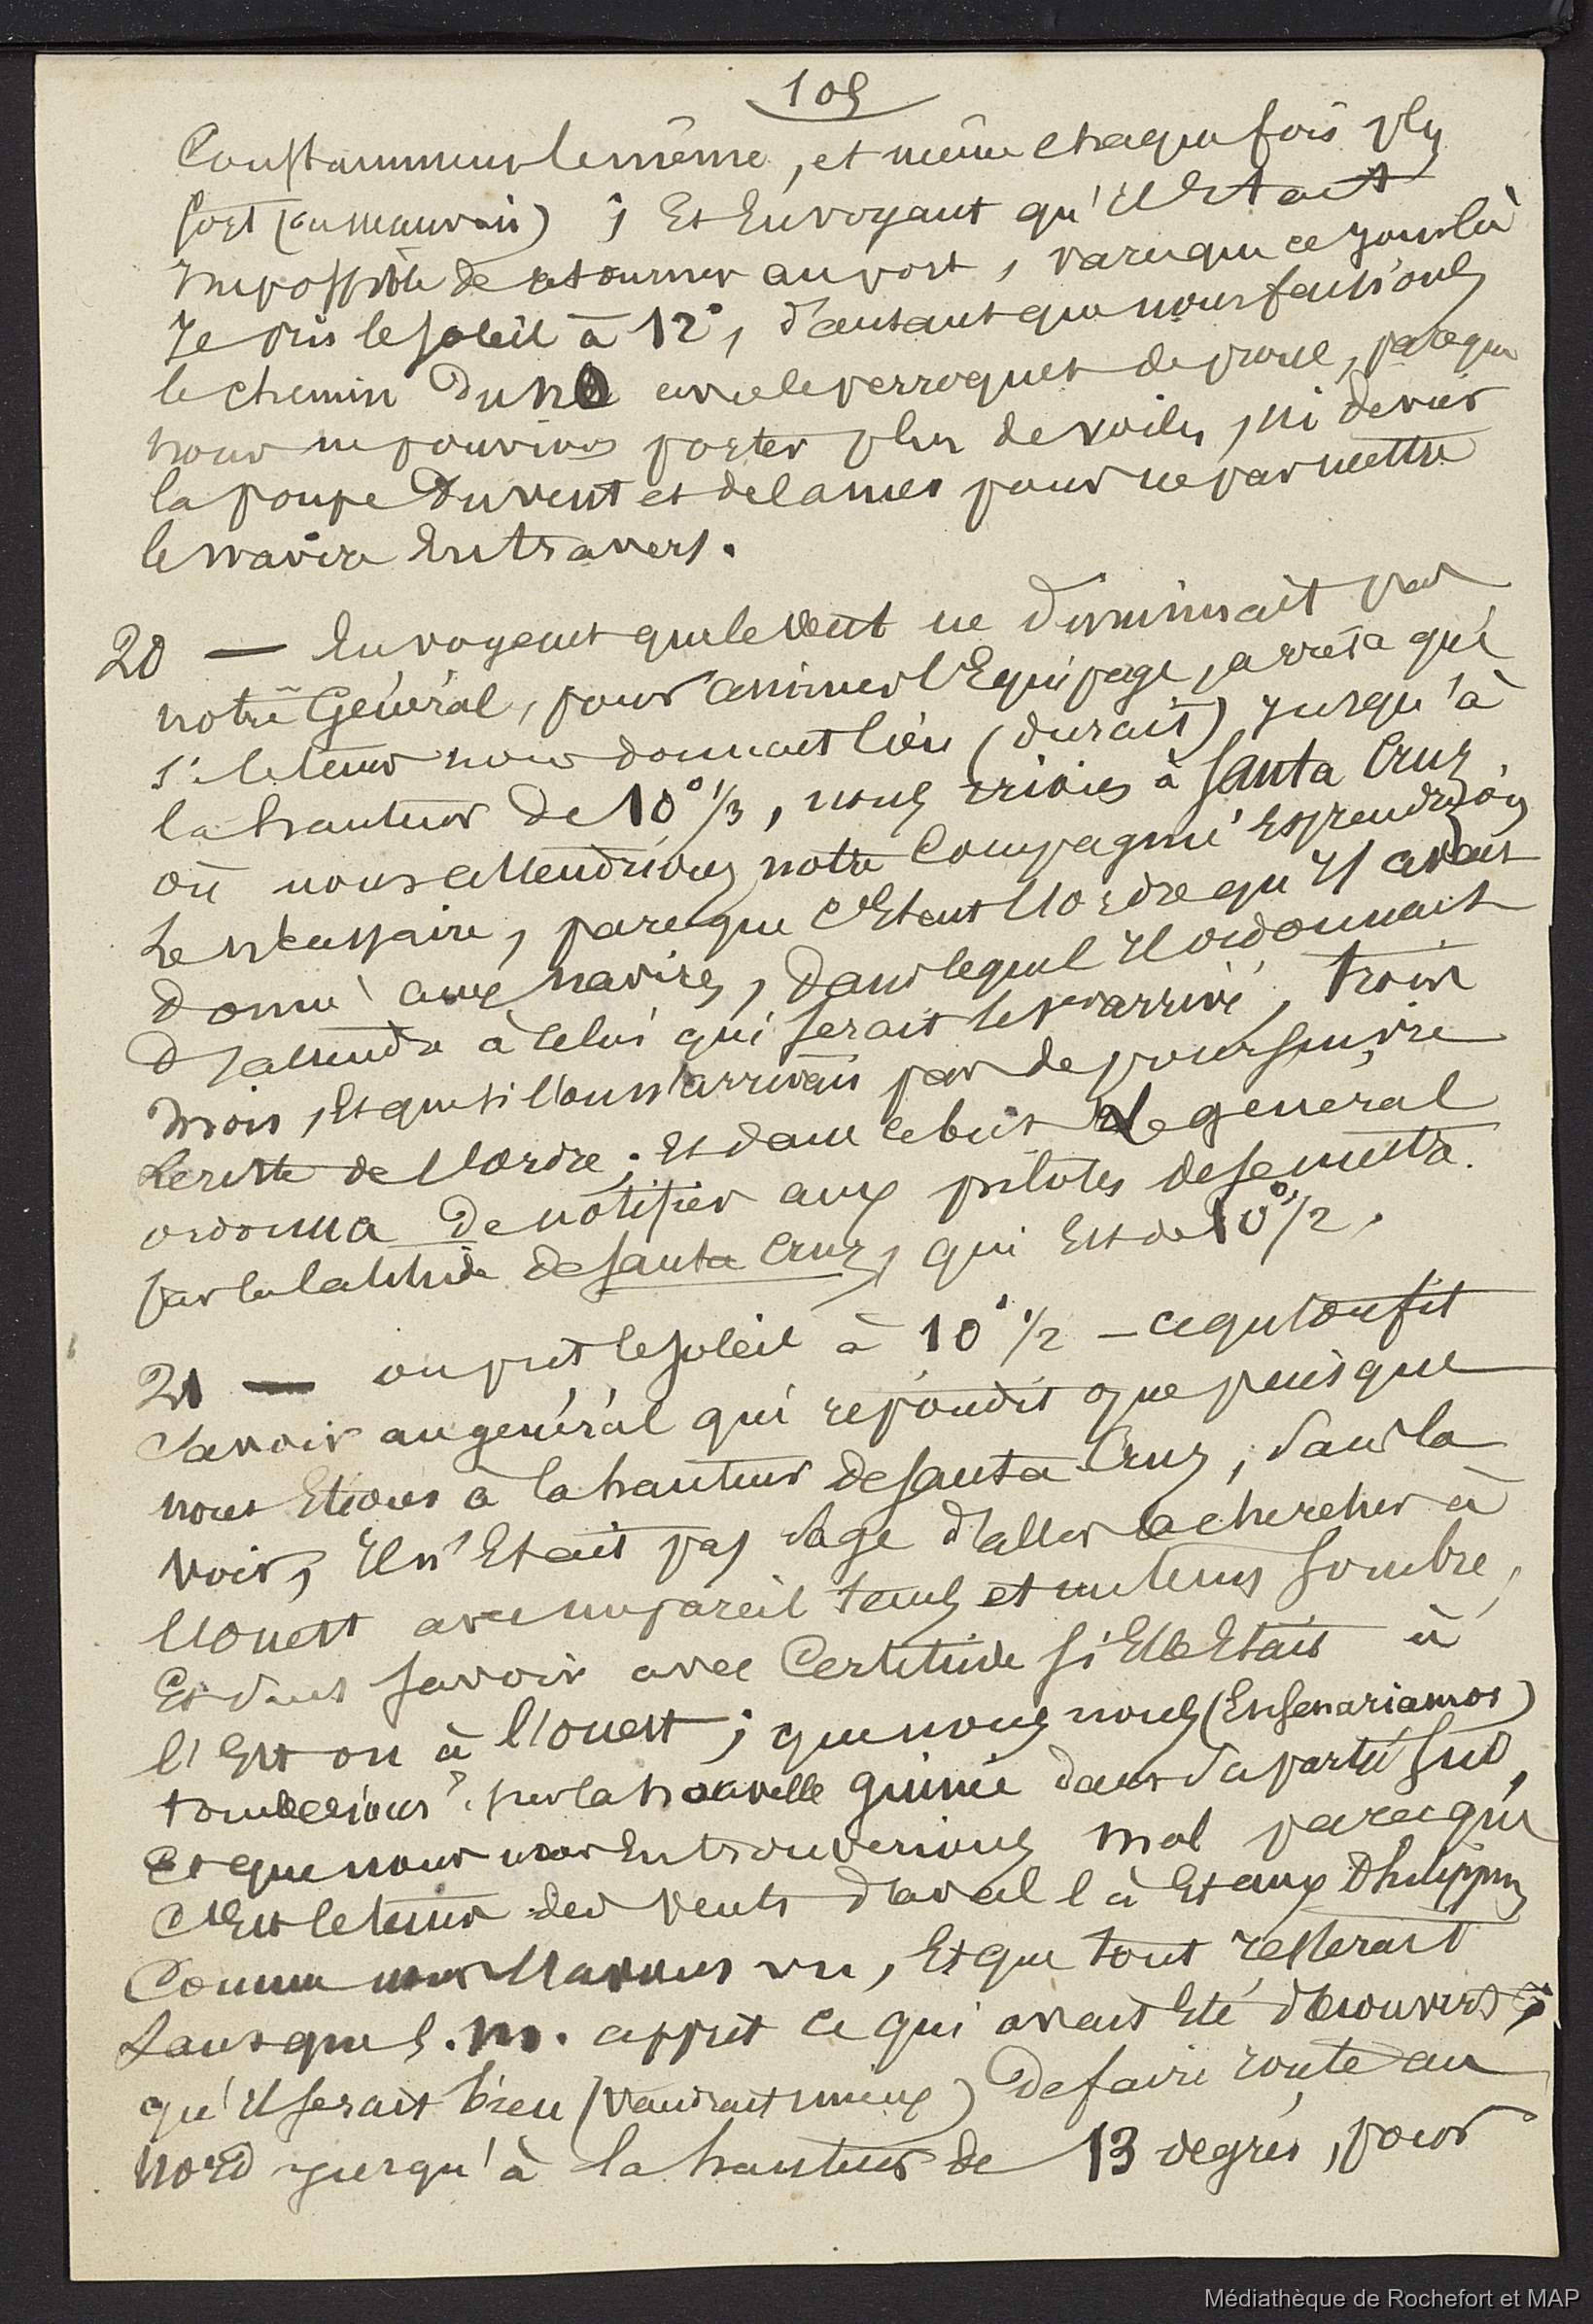 109
Constamment le même, et même chaque fois plus
fort (ou mauvais) ; Et En voyant qu'Il Etait
Impossible de retourner au port, parceque ce jour là
Je pris le soleil à 12°, d'autant que nous faisions
le chemin du NO avec le perroquet de proue, parceque
nous ne pouvions porter plus de voiles, ni
la poupe du vent et de la mer pour ne pas mettre
le navire En travers.
20 — En voyant que le Vent ne diminuait pas
notre Général, pour animer l'Equipage, arrêta que
si le tems nous donnait lieu (durait) jusqu'à
la hauteur de 10° 1/3, nous irions à Santa Cruz
où nous attendrions notre Compagnie Et prendrions
le nécessaire, parceque c'Etait l'Ordre qu'Il avait
donné aux navires, dans lequel Il ordonnait
d'attendre à celui qui serait le 1er arrivé, trois
mois, Et que si l'on n'arrivait pas de poursuivre
le reste de l'Ordre ; Et dans ce but le général
ordonna de notifier aux pilotes de se mettre
par la latitude de Santa Cruz, qui Est de 10° 1/2.
21 — on prit le soleil à 10° 1/2 — ce que l'on fit
savoir au général qui répondit que puisque
nous Etions à la hauteur de Santa Cruz, sans la
voir, Il n'Etait pas sage d'aller la chercher à
l'Ouest avec un pareil tems et un tems sombre,
Et sans savoir avec Certitude si Elle Etait à
l'Est ou à l'Ouest ; que nous nous (Ensenariamos)
tomberions ? sur la nouvelle guinée dans sa partie Sud,
Et que nous nous En trouverions mal parceque
c'Est le tems des Vents d'aval là Et aux Philippines
Comme nous l'avons vu, Et que tout resterait
sans que S. M. apprit ce qui avait Eté découvert ;
qu'Il serait bien (vaudrait mieux) de faire route au
Nord jusqu'à la hauteur de 13 degrés, pour
Médiathèque de Rochefort et MAP